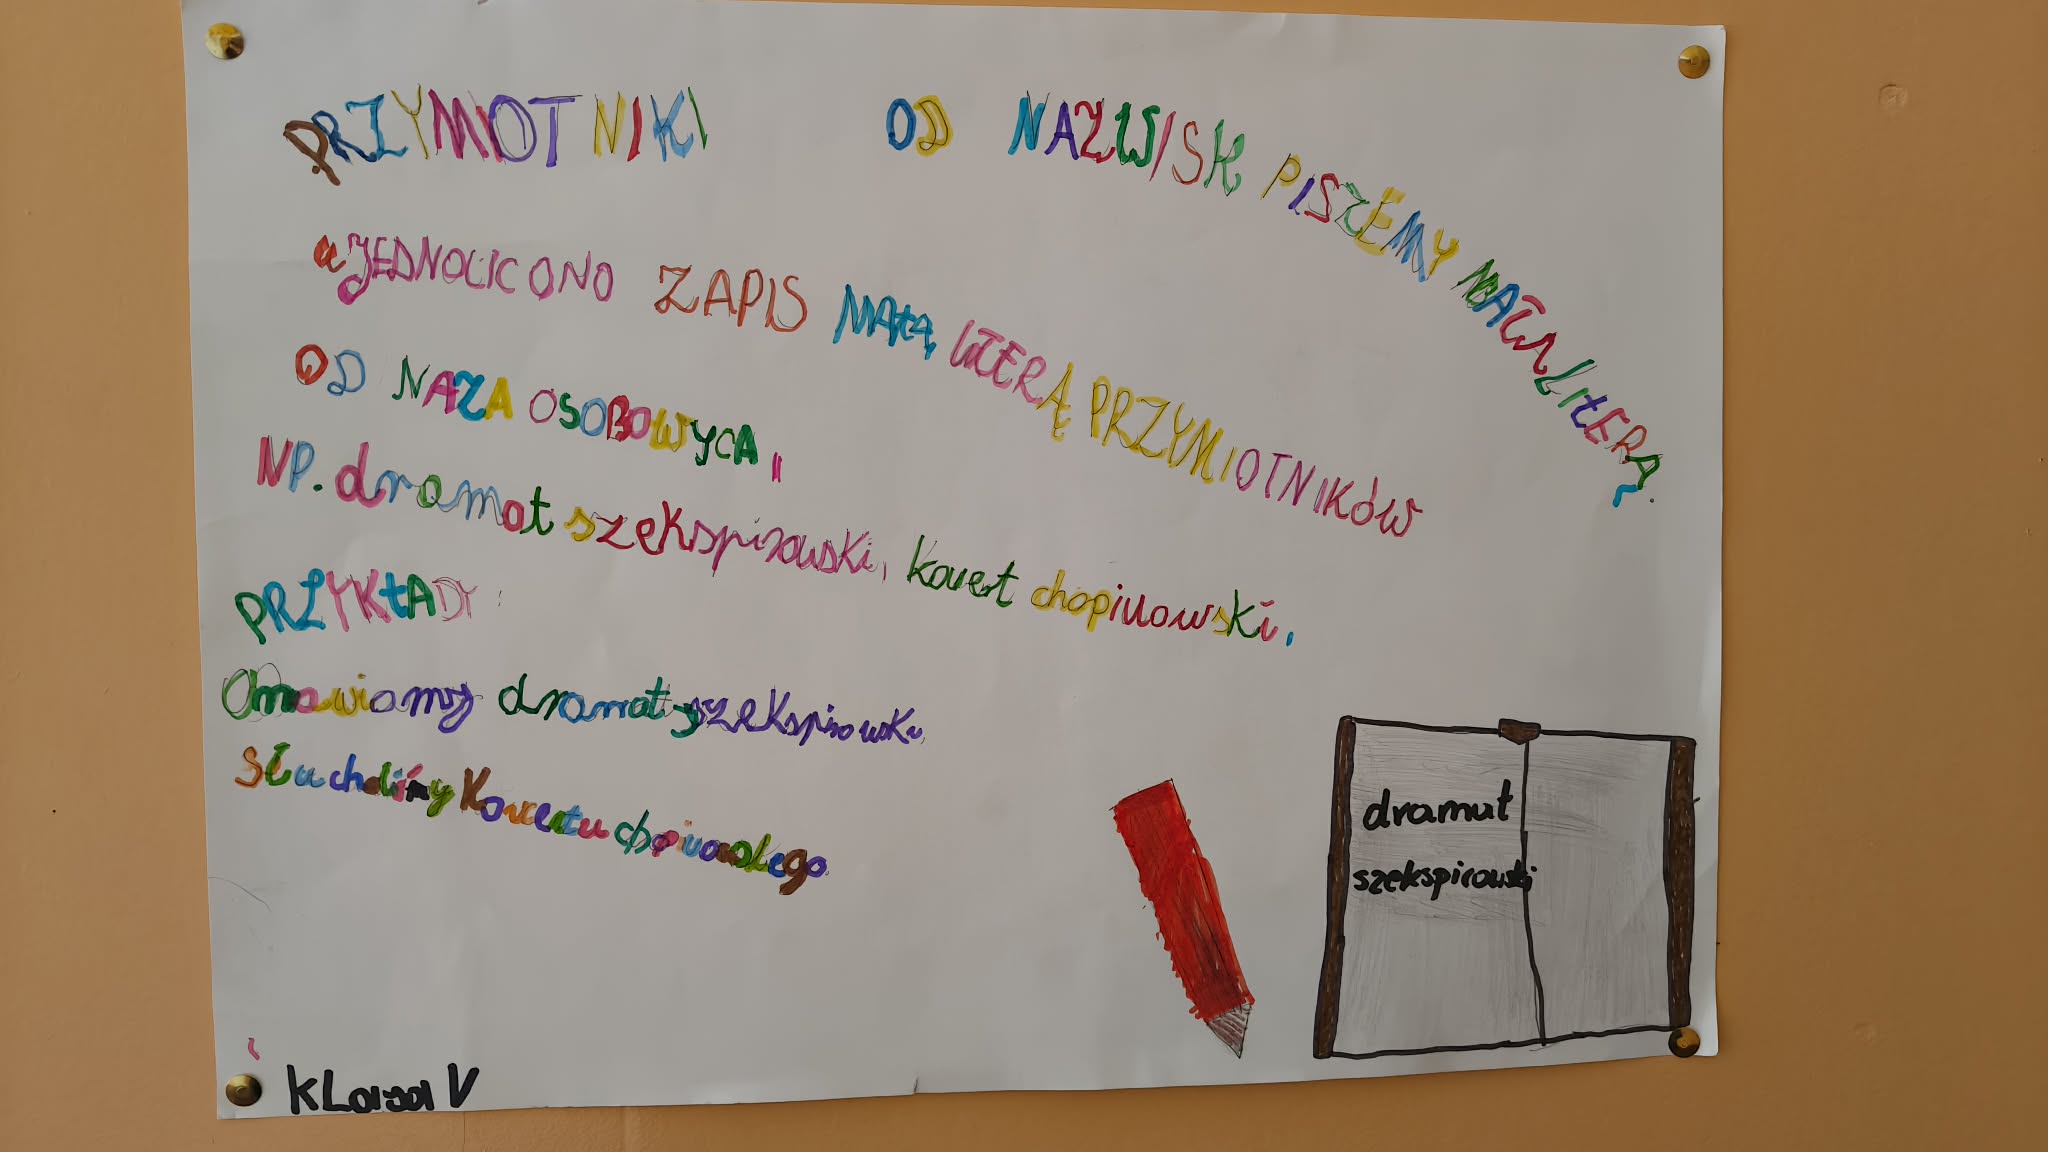 PRZYMIOTNIKI OD NAZWISK PISZEMY MAŁĄ LITERĄ.
uJEDNOLICONO ZAPIS MAŁĄ LITERĄ PRZYMIOTNIKÓW
OD NAZA OSOBOWYCA,
NP. dramat szekspirowski, koncert chopinowski.
PRZYKŁADY:
Omawiamy dramaty szekspirowski
Słuchaliśmy Koncertu chopinowskego
dramat
szekspirowski
KLasa V